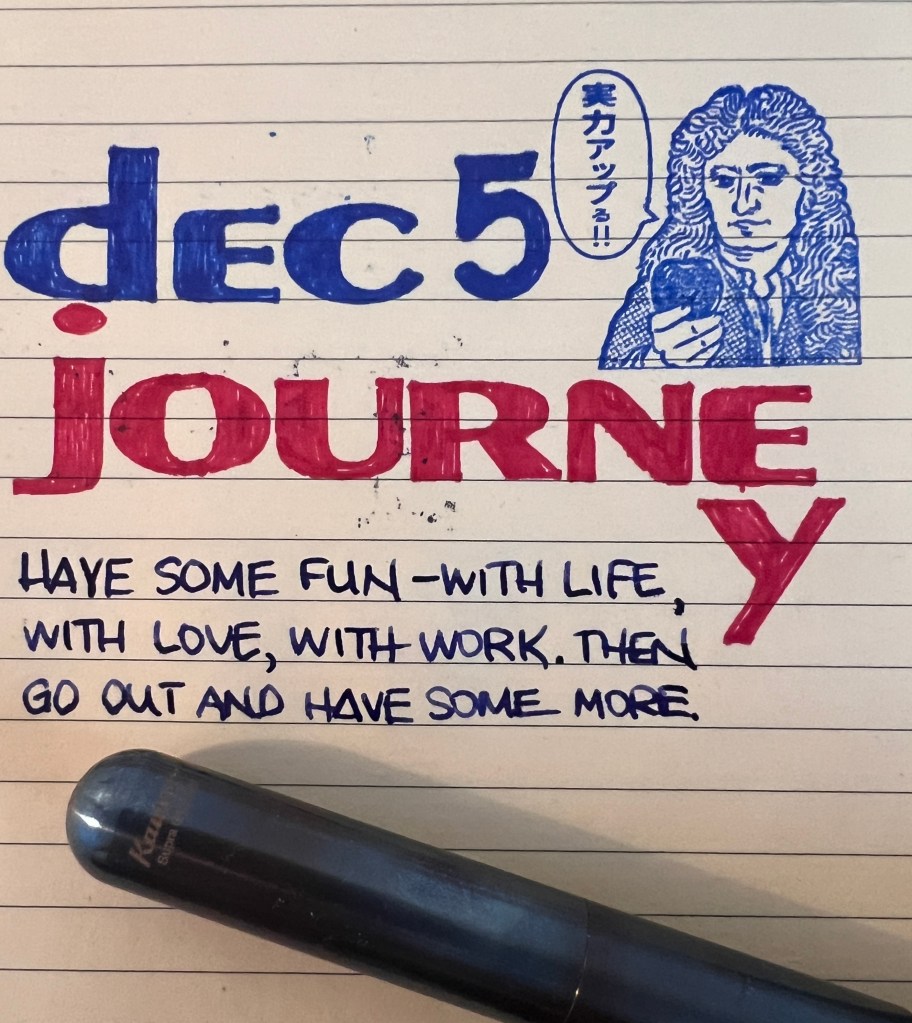 dEC 5
実力アップる!!
jOURNEY
HAVE SOME FUN-WITH LIFE,
WITH LOVE, WITH WORK. THEN
GO OUT AND HAVE SOME MORE.
Supra